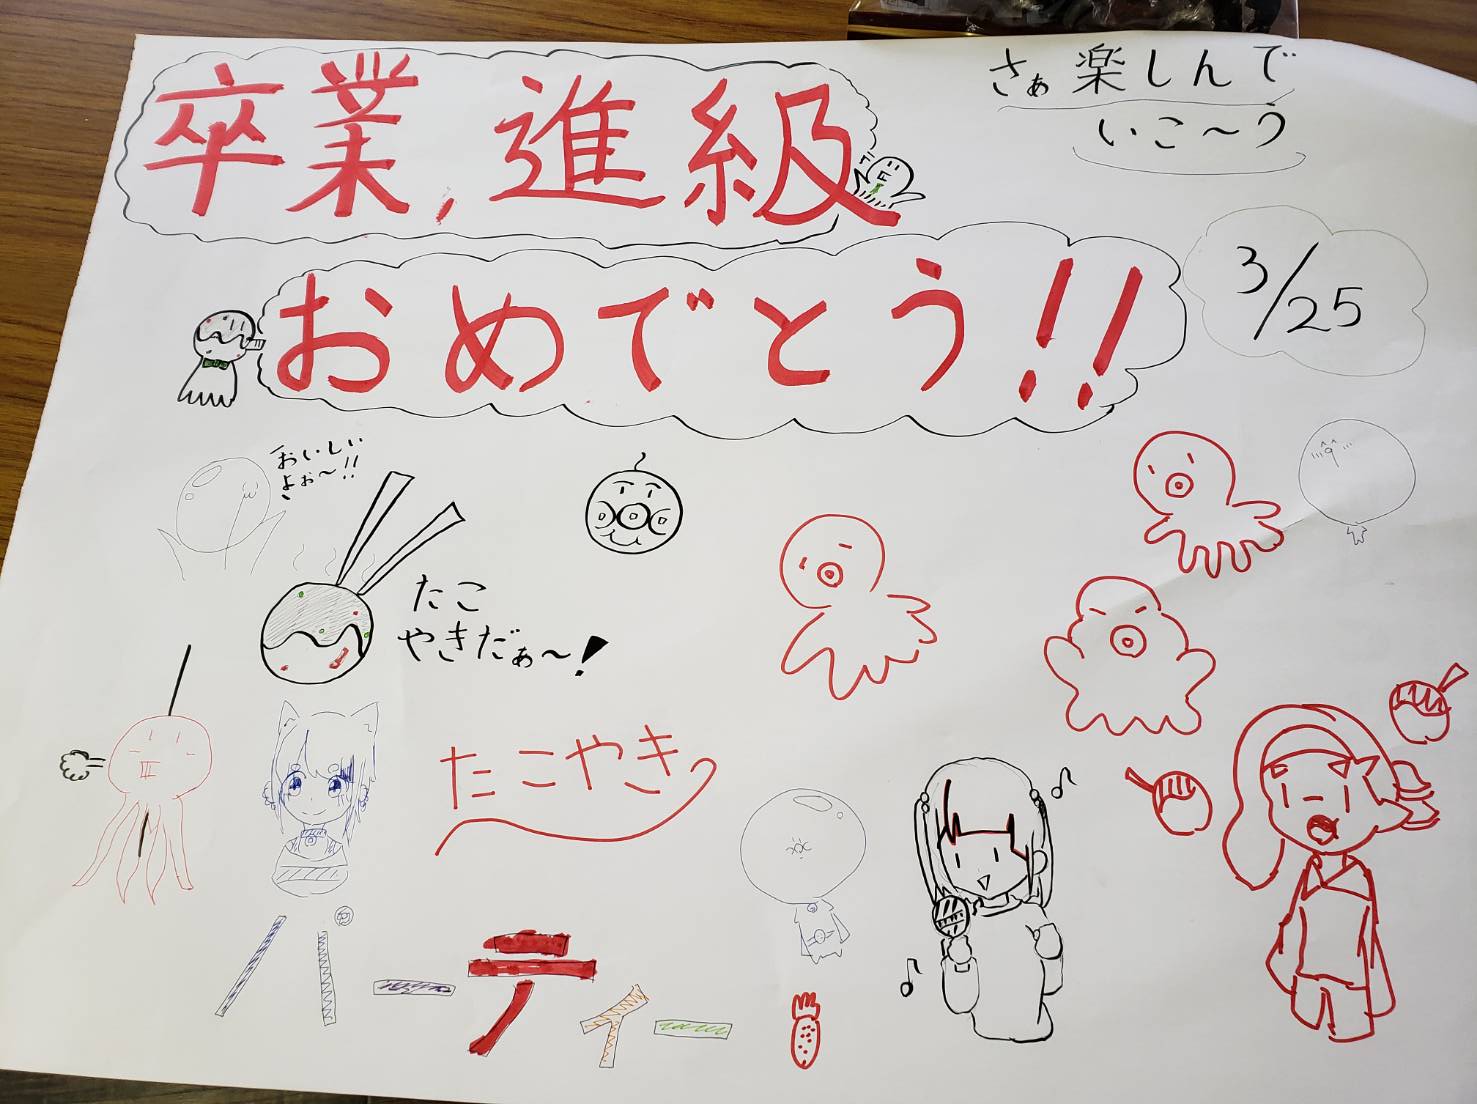 卒業,進級
おめでとう!!
さぁ楽しんで
いこ〜う
3/25
おいしい
よぉ〜!!
たこ
やきだぁ〜!
たこやき
パーティー